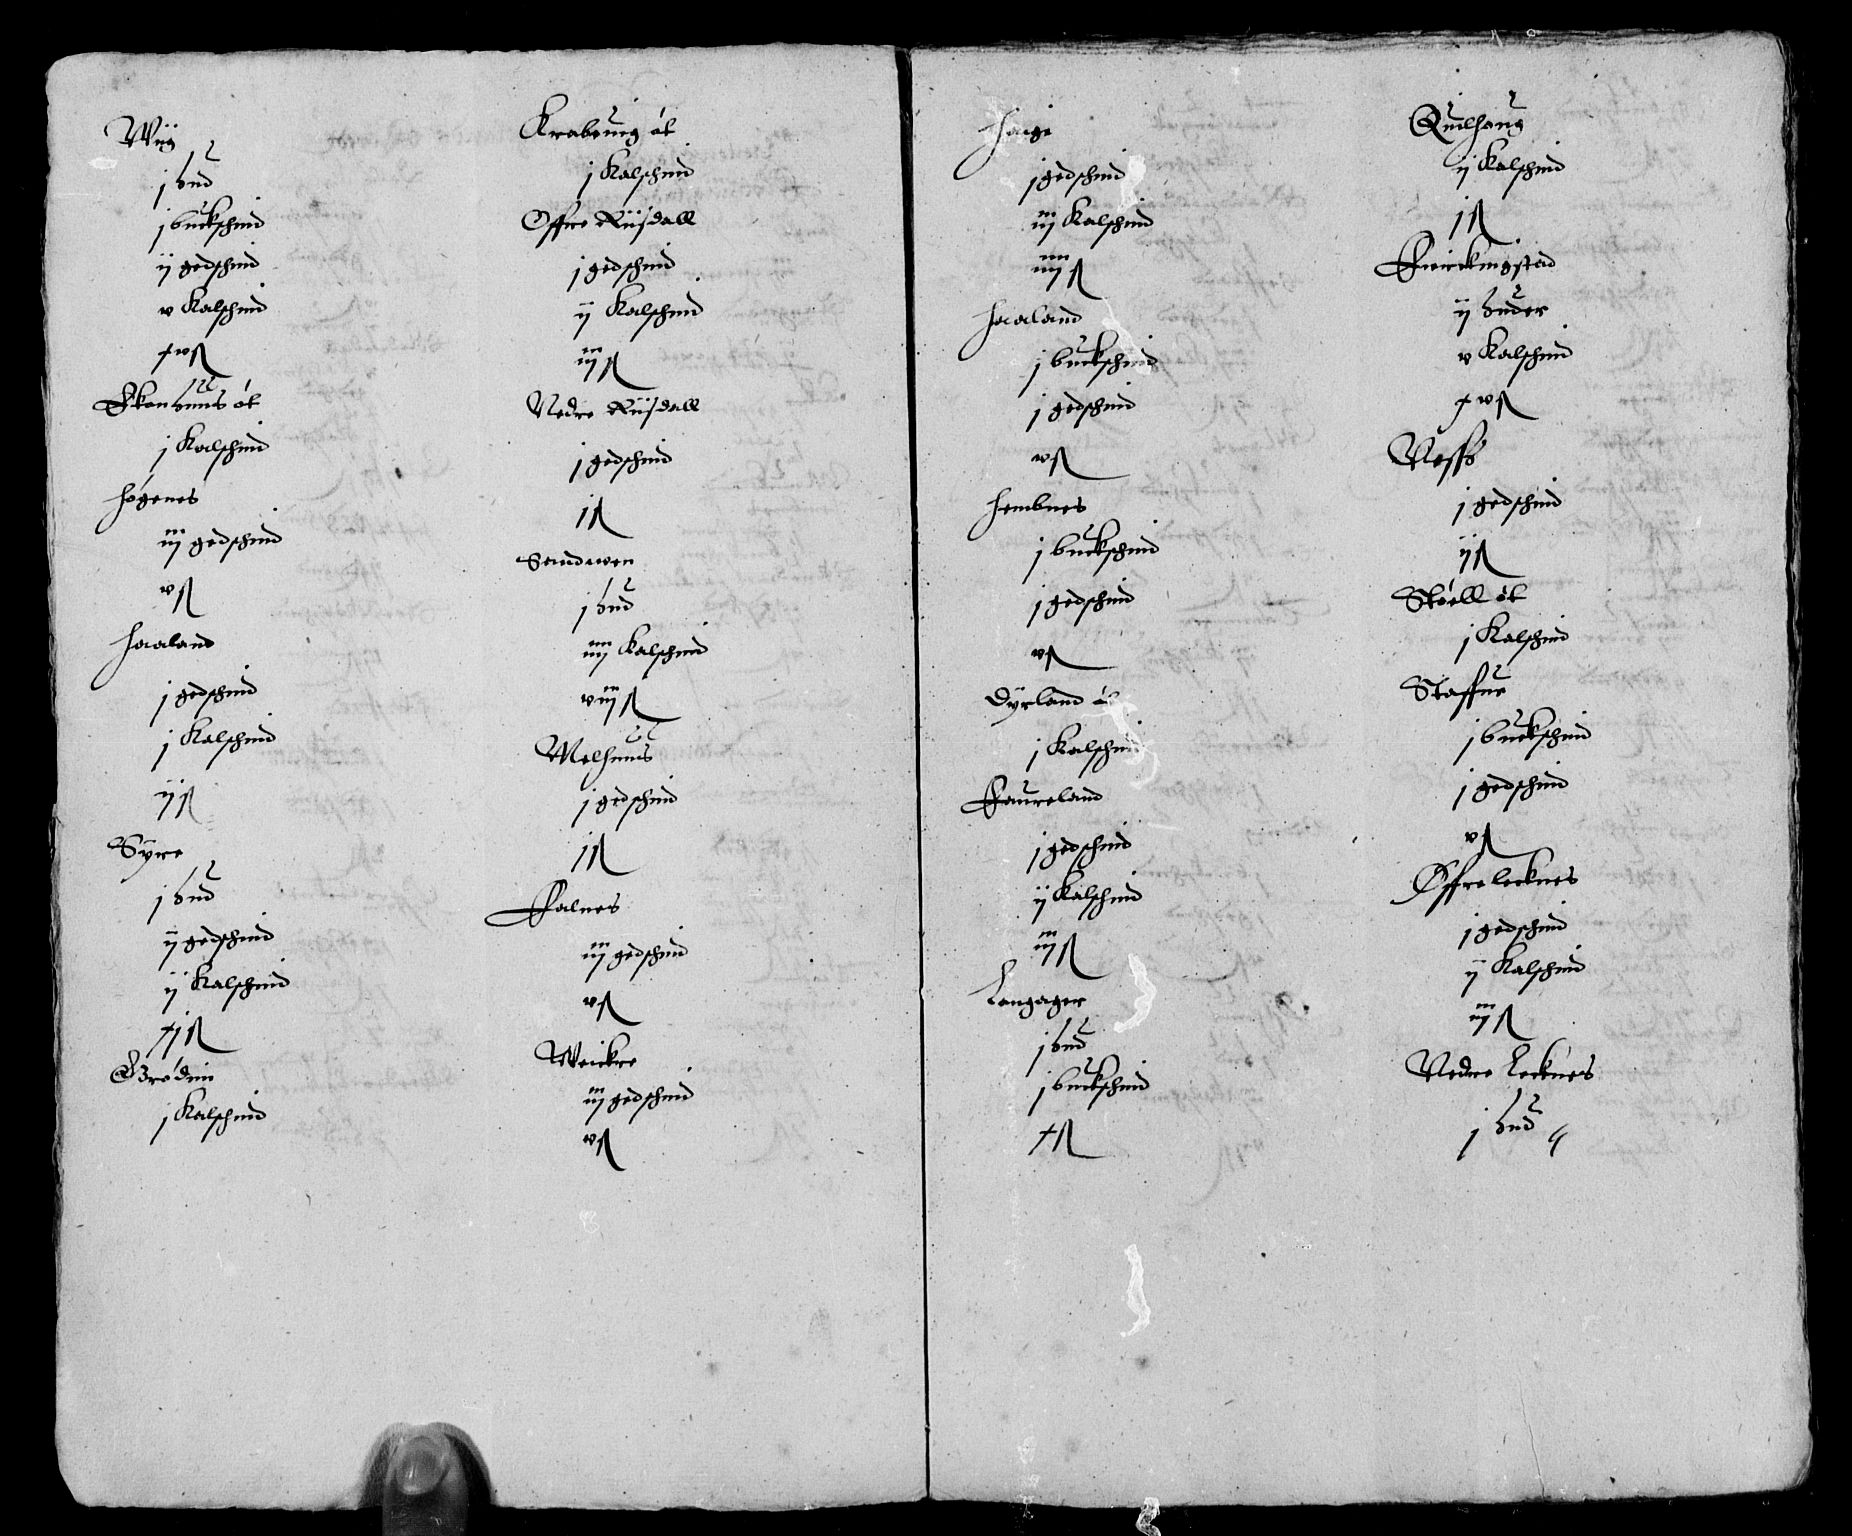 Wiig
j hud
j buckschind
ij gedschind
v Kalschind
xv ß
Skonhuus øt
j Kalschind
Høgenes
iij gedschind
v ß
Haaland
j gedschind
j Kalschind
ij ß
Syre
j hud
ij gedschind
ij Kalschind
xj ß
Grødim
j Kalschind
Krabeuig øt
j Kalschind
Offre Riisdall
j gedschind
ij Kalschind
iij ß
Nedre Riisdall
j gedschind
j ß
Sanduen
j hud
iiij Kalschind
viij ß
Melhuus
j gedschind
j ß
Falnes
iij gedschind
v ß
Weickre
iij gedschind
v ß
Haige
j gedschind
iij Kalschind
iiij ß
Haaland
j buckschind
j gedschind
v ß
Hembnes
j buckschind
j gedschind
v ß
Dyrland øt
j Kalschind
Faureland
j gedschind
ij Kalschind
iij ß
Langager
j hud
j buckschind
x ß
Quilhaug
ij Kalschind
j ß
Feirckingstad
ij huder
v Kalschind
xv ß
Nessø
j gedschind
ij ß
Støell øt
j Kalschind
Staffue
j buckschind
j gedschind
v ß
Øffre lecknes
j gedschind
ij Kalschind
iij ß
Nedre Lecknes
j hud